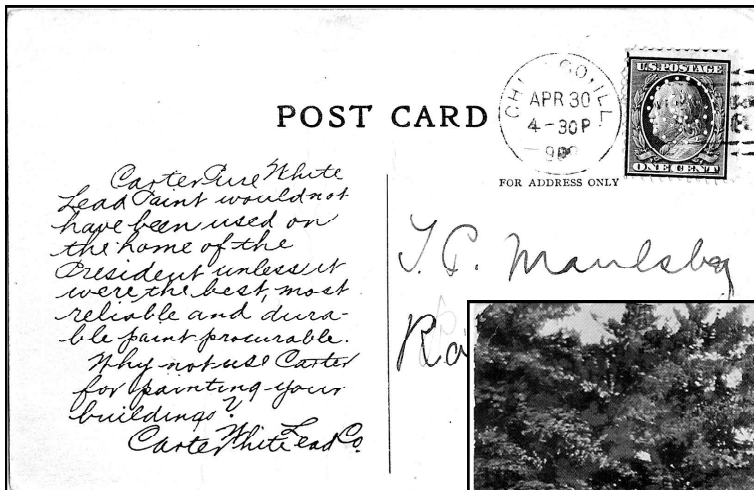 U.S. POSTAGE
ONE CENT
APR 30
4-30P
POST CARD
FOR ADDRESS ONLY
Carter Pure White
Lead Paint would not
have been used on
the home of the
President unless it
were the best, most
reliable and dura-
ble paint procurable.
Why not use Carter
for painting your
buildings?
Carter White Lead Co.